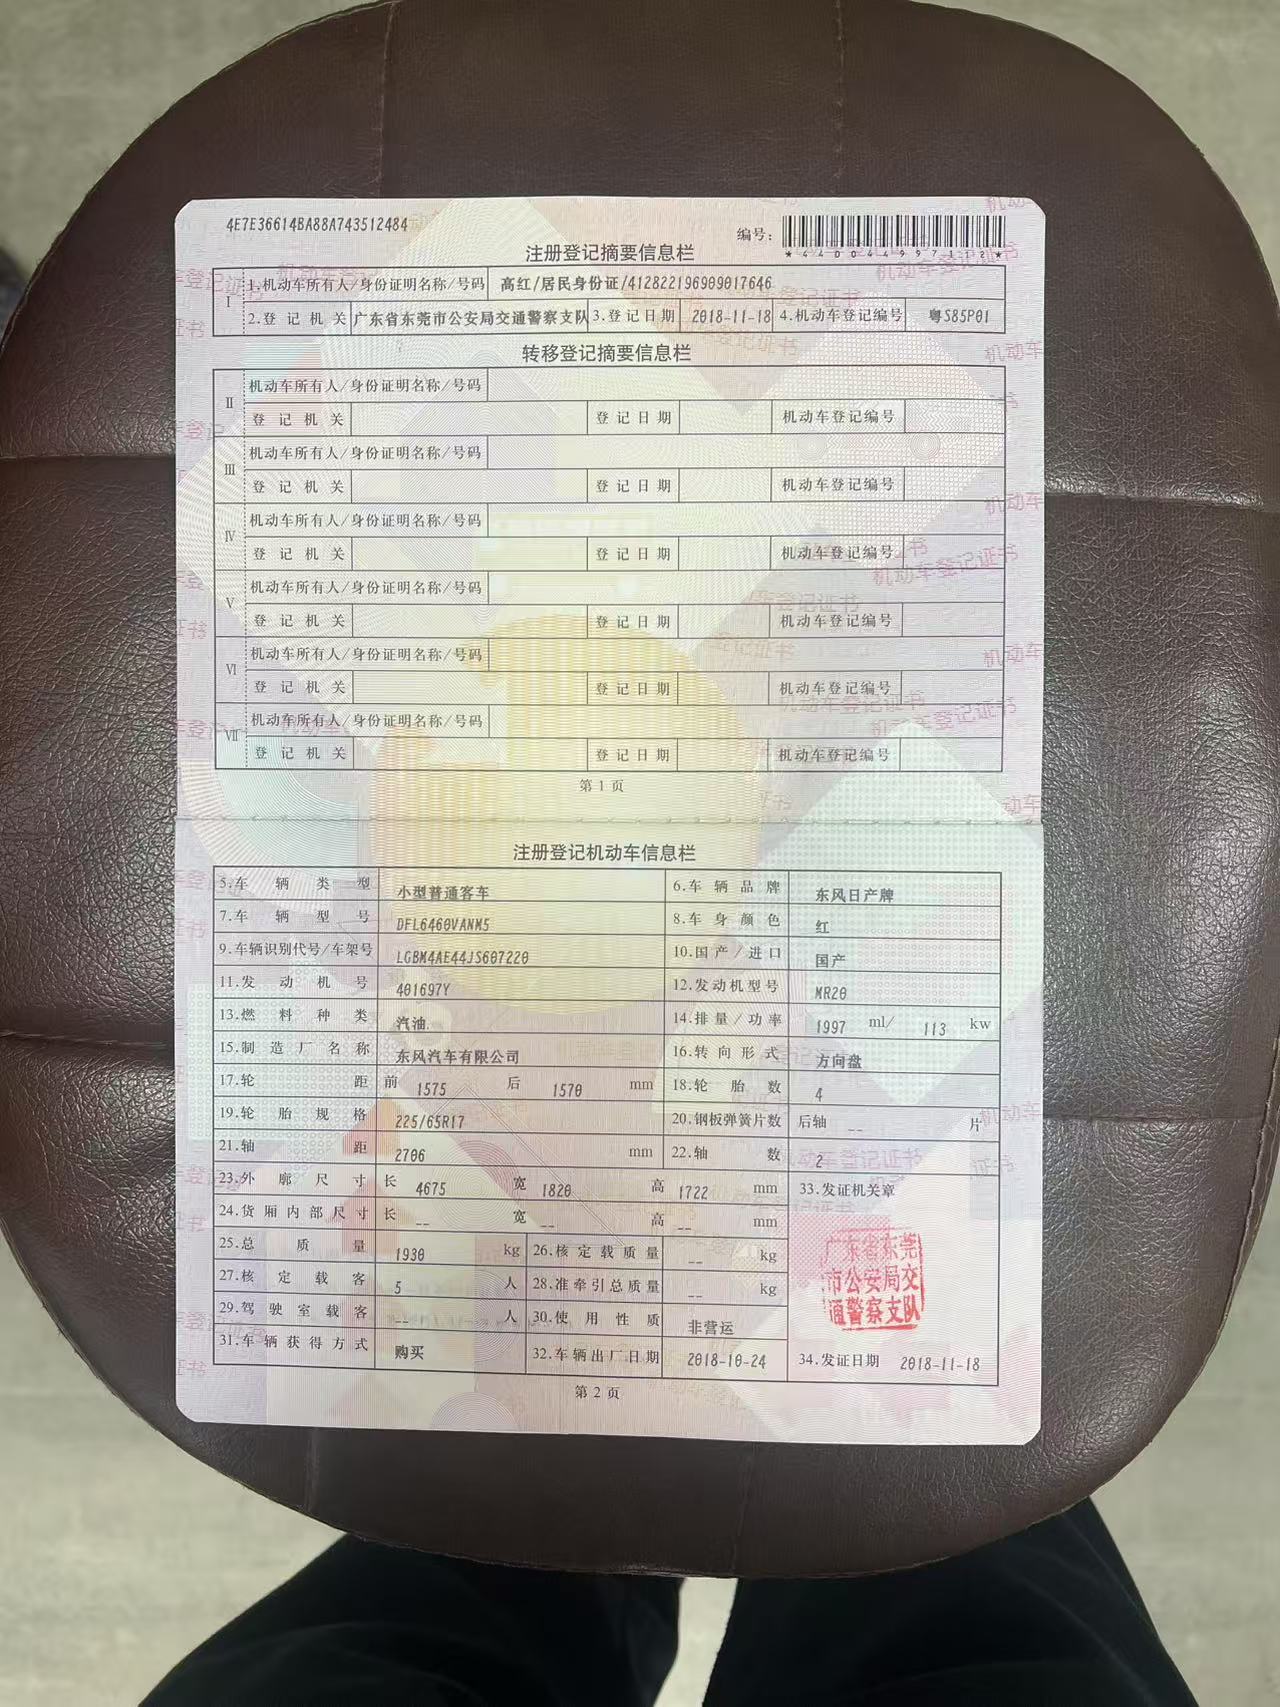 4E7E36614BA88A743512484
编号：
*440044997112*
注册登记摘要信息栏
I
1.机动车所有人/身份证明名称/号码 高红/居民身份证/412822196909017646
2.登记机关 广东省东莞市公安局交通警察支队 3.登记日期 2018-11-18 4.机动车登记编号 粤S85P01
转移登记摘要信息栏
II
机动车所有人/身份证明名称/号码
登记机关 登记日期 机动车登记编号
III
机动车所有人/身份证明名称/号码
登记机关 登记日期 机动车登记编号
IV
机动车所有人/身份证明名称/号码
登记机关 登记日期 机动车登记编号
V
机动车所有人/身份证明名称/号码
登记机关 登记日期 机动车登记编号
VI
机动车所有人/身份证明名称/号码
登记机关 登记日期 机动车登记编号
VII
机动车所有人/身份证明名称/号码
登记机关 登记日期 机动车登记编号
第1页
注册登记机动车信息栏
5.车辆类型 小型普通客车 6.车辆品牌 东风日产牌
7.车辆型号 DFL6460VANM5 8.车身颜色 红
9.车辆识别代号/车架号 LGBM4AE44JS607220 10.国产/进口 国产
11.发动机号 401697Y 12.发动机型号 MR20
13.燃料种类 汽油 14.排量/功率 1997 ml/ 113 kw
15.制造厂名称 东风汽车有限公司 16.转向形式 方向盘
17.轮距 前 1575 后 1570 mm 18.轮胎数 4
19.轮胎规格 225/65R17 20.钢板弹簧片数 后轴 -- 片
21.轴距 2706 mm 22.轴数 2
23.外廓尺寸 长 4675 宽 1820 高 1722 mm 33.发证机关章
24.货厢内部尺寸 长 -- 宽 -- 高 -- mm
25.总质量 1930 kg 26.核定载质量 -- kg
27.核定载客 5 人 28.准牵引总质量 -- kg
29.驾驶室载客 -- 人 30.使用性质 非营运
31.车辆获得方式 购买 32.车辆出厂日期 2018-10-24 34.发证日期 2018-11-18
广东省东莞
市公安局交
通警察支队
第2页